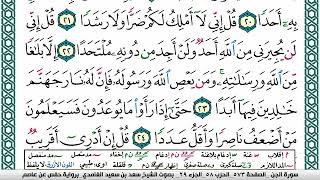 بِهِۦٓ أَحَدًا ٢٠ قُلْ إِنِّي لَآ أَمْلِكُ لَكُمْ ضَرًّا وَلَا رَشَدًا ٢١ قُلْ إِنِّي
لَن يُجِيرَنِي مِنَ ٱللَّهِ أَحَدٌ وَلَنْ أَجِدَ مِن دُونِهِۦ مُلْتَحَدًا ٢٢ إِلَّا بَلَٰغًا
مِّنَ ٱللَّهِ وَرِسَٰلَٰتِهِۦ ۚ وَمَن يَعْصِ ٱللَّهَ وَرَسُولَهُۥ فَإِنَّ لَهُۥ نَارَ جَهَنَّمَ
خَٰلِدِينَ فِيهَآ أَبَدًا ٢٣ حَتَّىٰٓ إِذَا رَأَوْا۟ مَا يُوعَدُونَ فَسَيَعْلَمُونَ
مَنْ أَضْعَفُ نَاصِرًا وَأَقَلُّ عَدَدًا ٢٤ قُلْ إِنْ أَدْرِيٓ أَقَرِيبٌ
سورة الجن الصفحة ٥٧٣ الحزب ٥٨ الجزء ٢٩ بصوت الشيخ سعد بن سعيد الغامدي برواية حفص عن عاصم